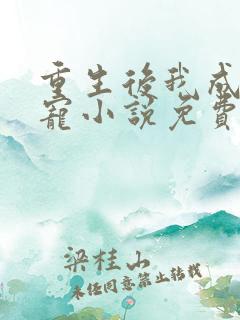 重生後我成
寵小說免費
梁桂山
未经同意禁止转载